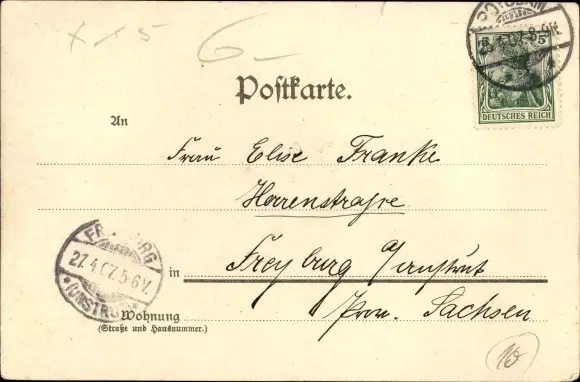 x x 5
6-
POTSDAM
8-9N.
5 5
DEUTSCHES REICH
Postkarte.
An
Frau Elise Franke
Herrenstraße
in Freyburg a/Unstrut
Prov. Sachsen
FREYBURG
27.4.07.5-6V.
*(UNSTRUT)
Wohnung
(Straße und Hausnummer.)
10